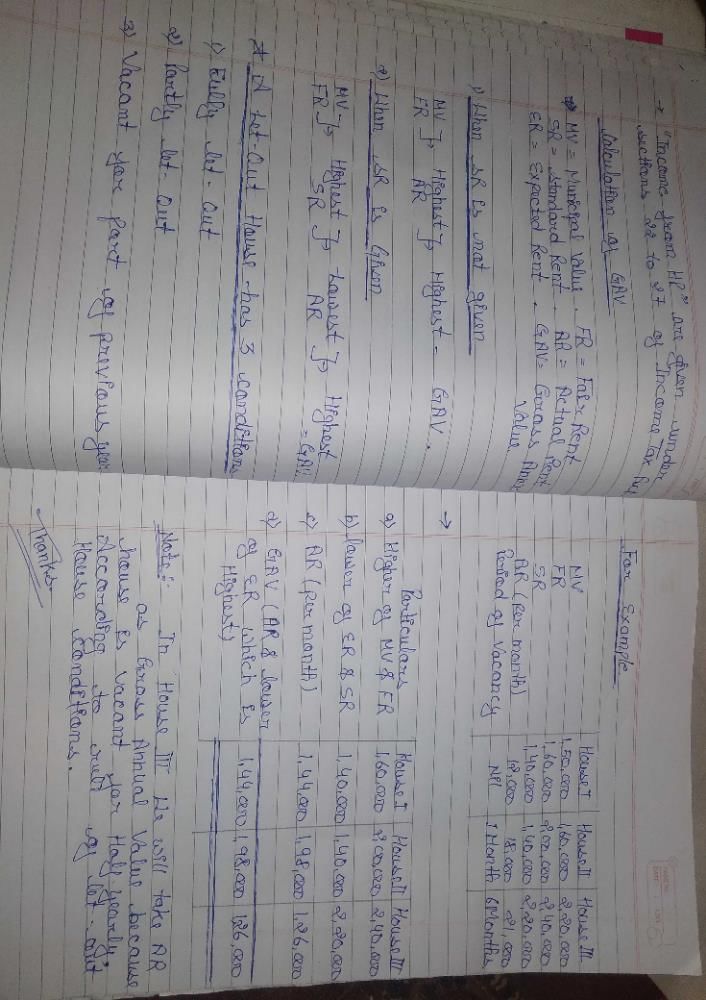 → "Income from HP" are given under
sections 22 to 27 of Income Tax Act
Calculation of GAV
MV = Municipal Value, FR = Fair Rent
SR = Standard Rent, AR = Actual Rent
ER = Expected Rent, GAV = Gross Annu
Value
1) When SR is not given
MV } Highest } Highest = GAV.
FR } AR
2) When SR is Given
MV } Highest } Lowest } Highest
FR } SR } AR = GAV
* A Let-Out House has 3 conditions
1) Fully let-out
2) Partly let-out
3) Vacant for part of previous year
For Example
House I House II House III
MV 1,50,000 1,60,000 2,20,000
FR 1,60,000 2,00,000 2,40,000
SR 1,40,000 1,40,000 2,20,000
AR (per month) 12,000 18,000 21,000
Period of Vacancy Nil 1 Month 6 Months
→
Particulars House I House II House III
a) Higher of MV & FR 1,60,000 2,00,000 2,40,000
b) lower of ER & SR 1,40,000 1,40,000 2,20,000
c) AR (per month) 1,44,000 1,98,000 1,26,000
d) GAV (AR & lower
of ER which is
Highest) 1,44,000 1,98,000 1,26,000
Note:- In House III We will take AR
as Gross Annual Value because
house is vacant for Half yearly;
According to rule of let-out
House Conditions.
Thanks